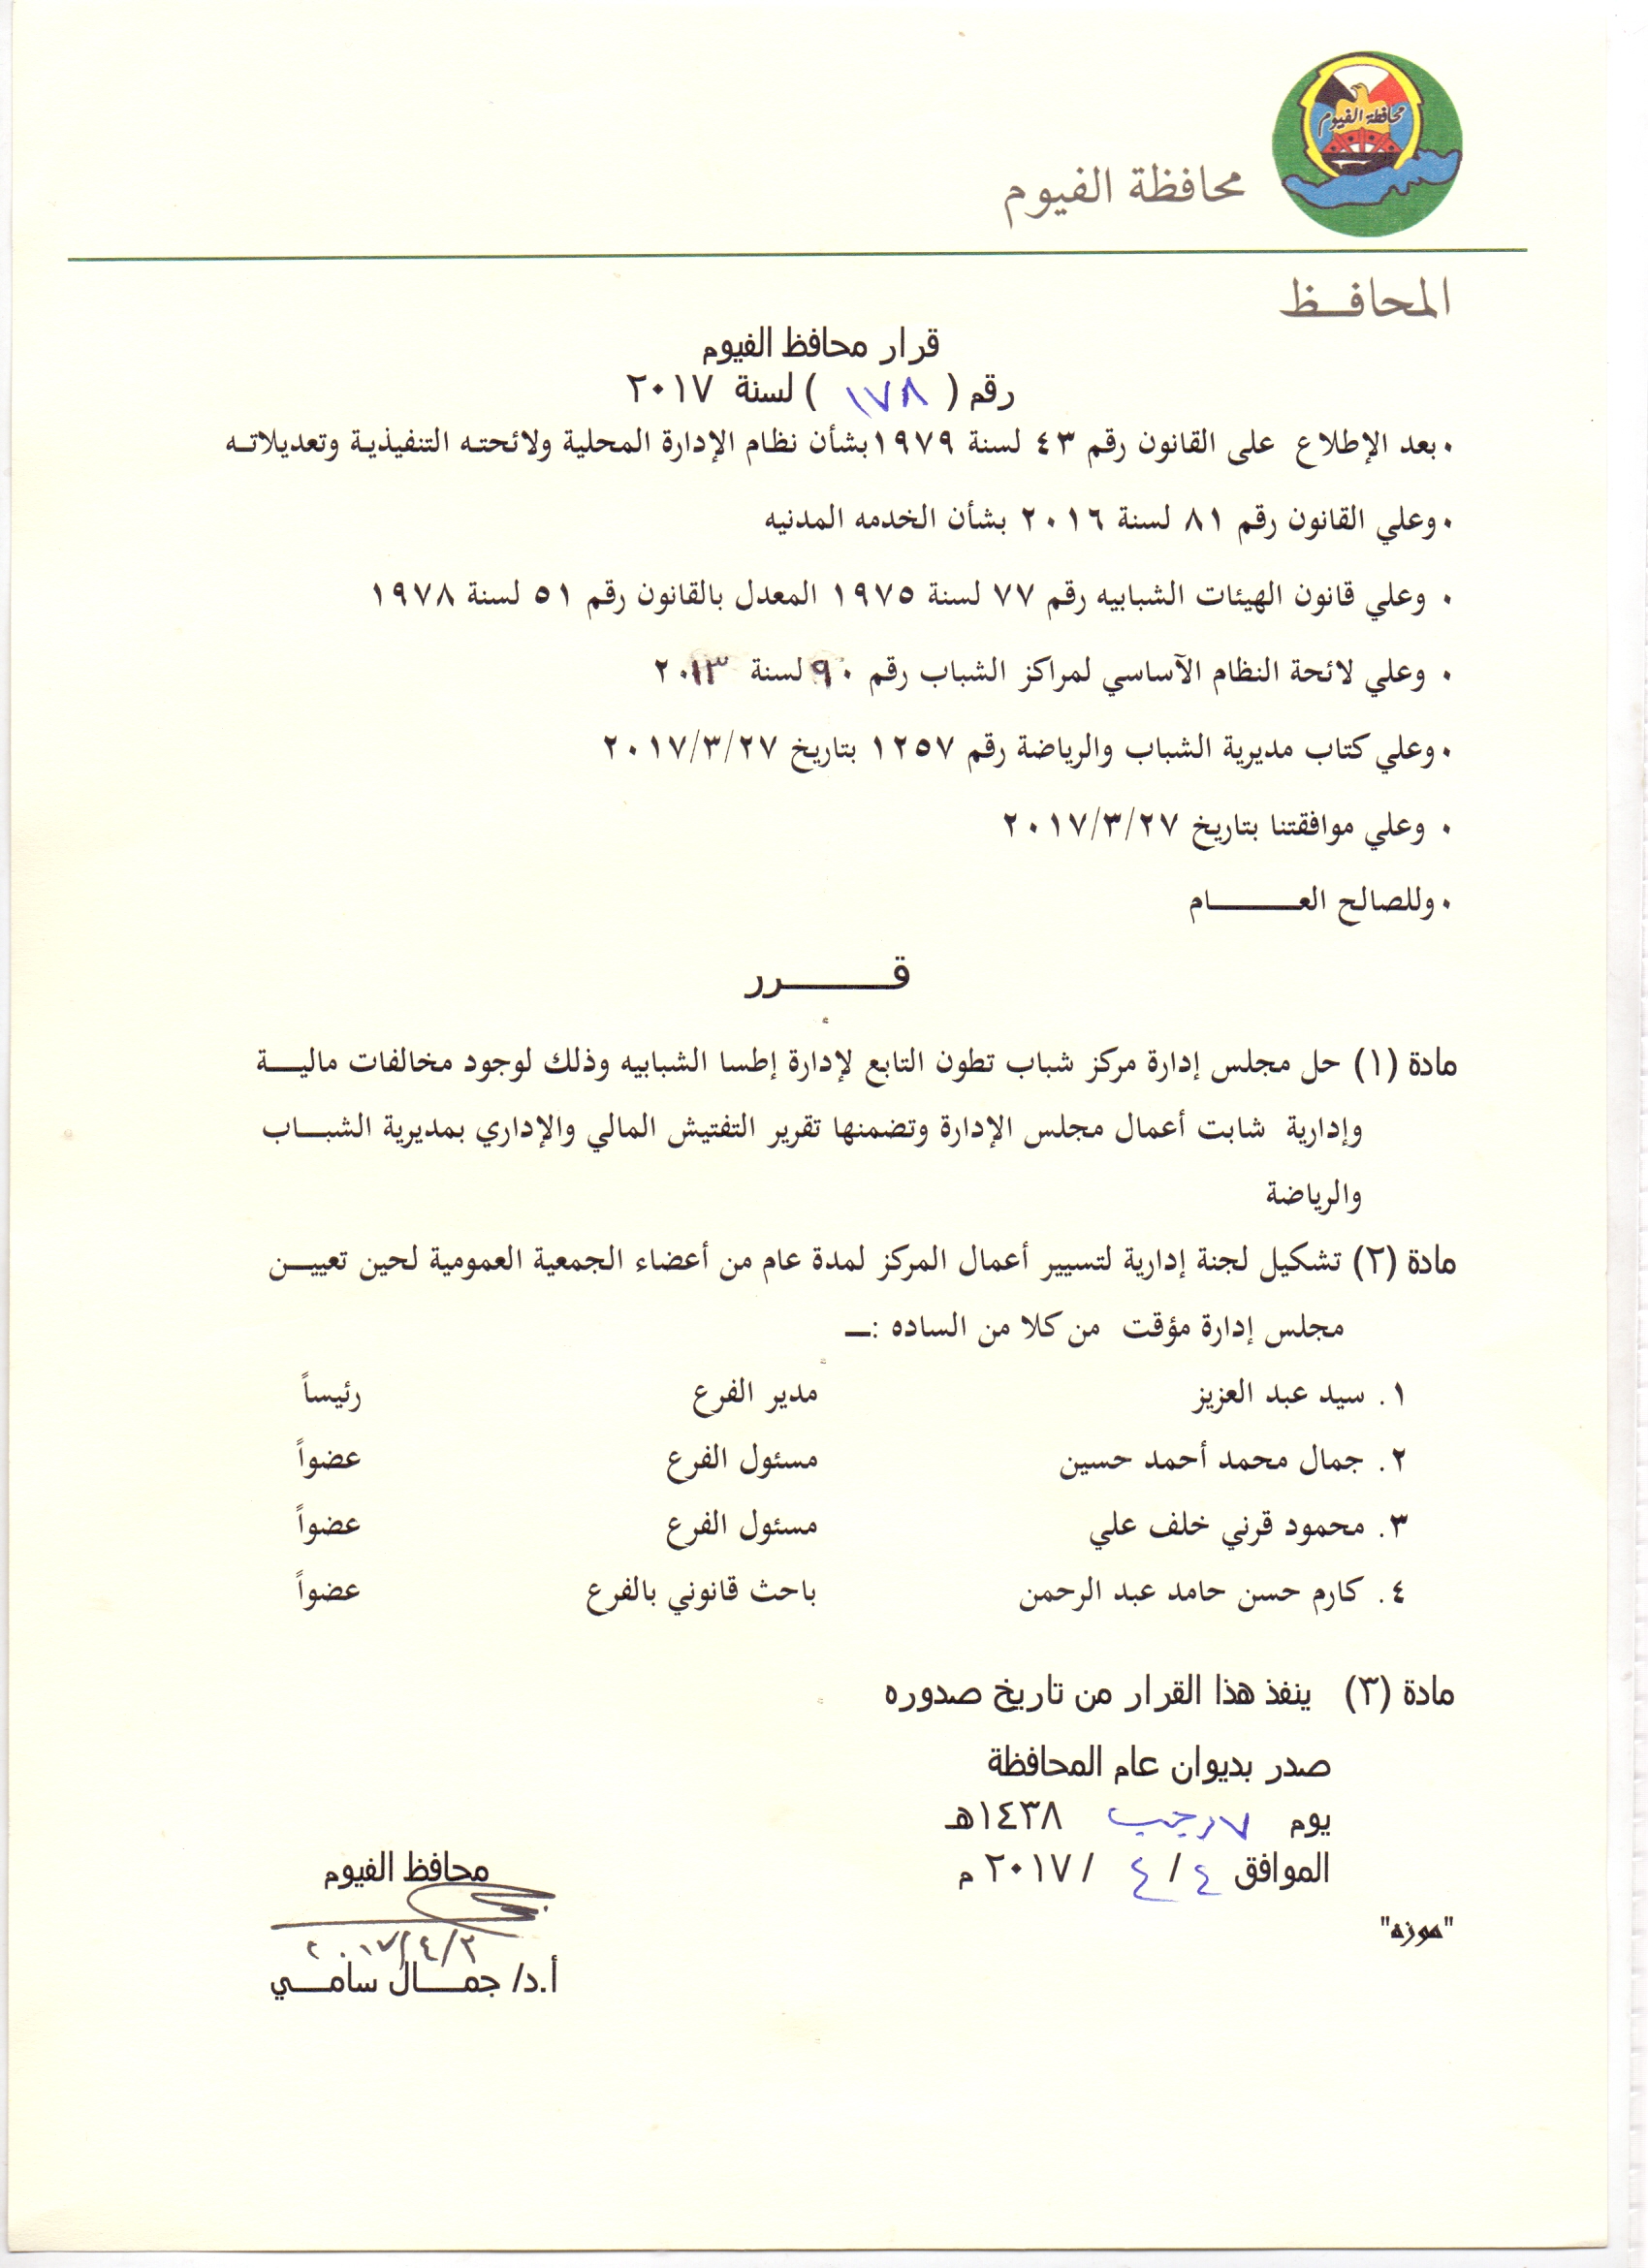 محافظة الفيوم
محافظة الفيوم
المحافـــظ
قرار محافظ الفيوم
رقم ( ١٧٨ ) لسنة ٢٠١٧
• بعد الإطلاع على القانون رقم ٤٣ لسنة ١٩٧٩ بشأن نظام الإدارة المحلية ولائحته التنفيذية وتعديلاته
• وعلي القانون رقم ٨١ لسنة ٢٠١٦ بشأن الخدمه المدنيه
• وعلي قانون الهيئات الشبابيه رقم ٧٧ لسنة ١٩٧٥ المعدل بالقانون رقم ٥١ لسنة ١٩٧٨
• وعلي لائحة النظام الآساسي لمراكز الشباب رقم ٩٠ لسنة ٢٠١٣
• وعلي كتاب مديرية الشباب والرياضة رقم ١٢٥٧ بتاريخ ٢٠١٧/٣/٢٧
• وعلي موافقتنا بتاريخ ٢٠١٧/٣/٢٧
• وللصالح العـــــــــام
قـــــــــرر
مادة (١) حل مجلس إدارة مركز شباب تطون التابع لإدارة إطسا الشبابيه وذلك لوجود مخالفات ماليـــة
وإدارية شابت أعمال مجلس الإدارة وتضمنها تقرير التفتيش المالي والإداري بمديرية الشبـــاب
والرياضة
مادة (٢) تشكيل لجنة إدارية لتسيير أعمال المركز لمدة عام من أعضاء الجمعية العمومية لحين تعييـــن
مجلس إدارة مؤقت من كلا من الساده :ــ
١. سيد عبد العزيز مدير الفرع رئيساً
٢. جمال محمد أحمد حسين مسئول الفرع عضواً
٣. محمود قرني خلف علي مسئول الفرع عضواً
٤. كارم حسن حامد عبد الرحمن باحث قانوني بالفرع عضواً
مادة (٣) ينفذ هذا القرار من تاريخ صدوره
صدر بديوان عام المحافظة
يوم ٧ رجب ١٤٣٨هـ
الموافق ٤ / ٤ / ٢٠١٧ م
"موزه"
محافظ الفيوم
٢٠١٧/٤/٢
أ.د/ جمـــــال سامـــــي